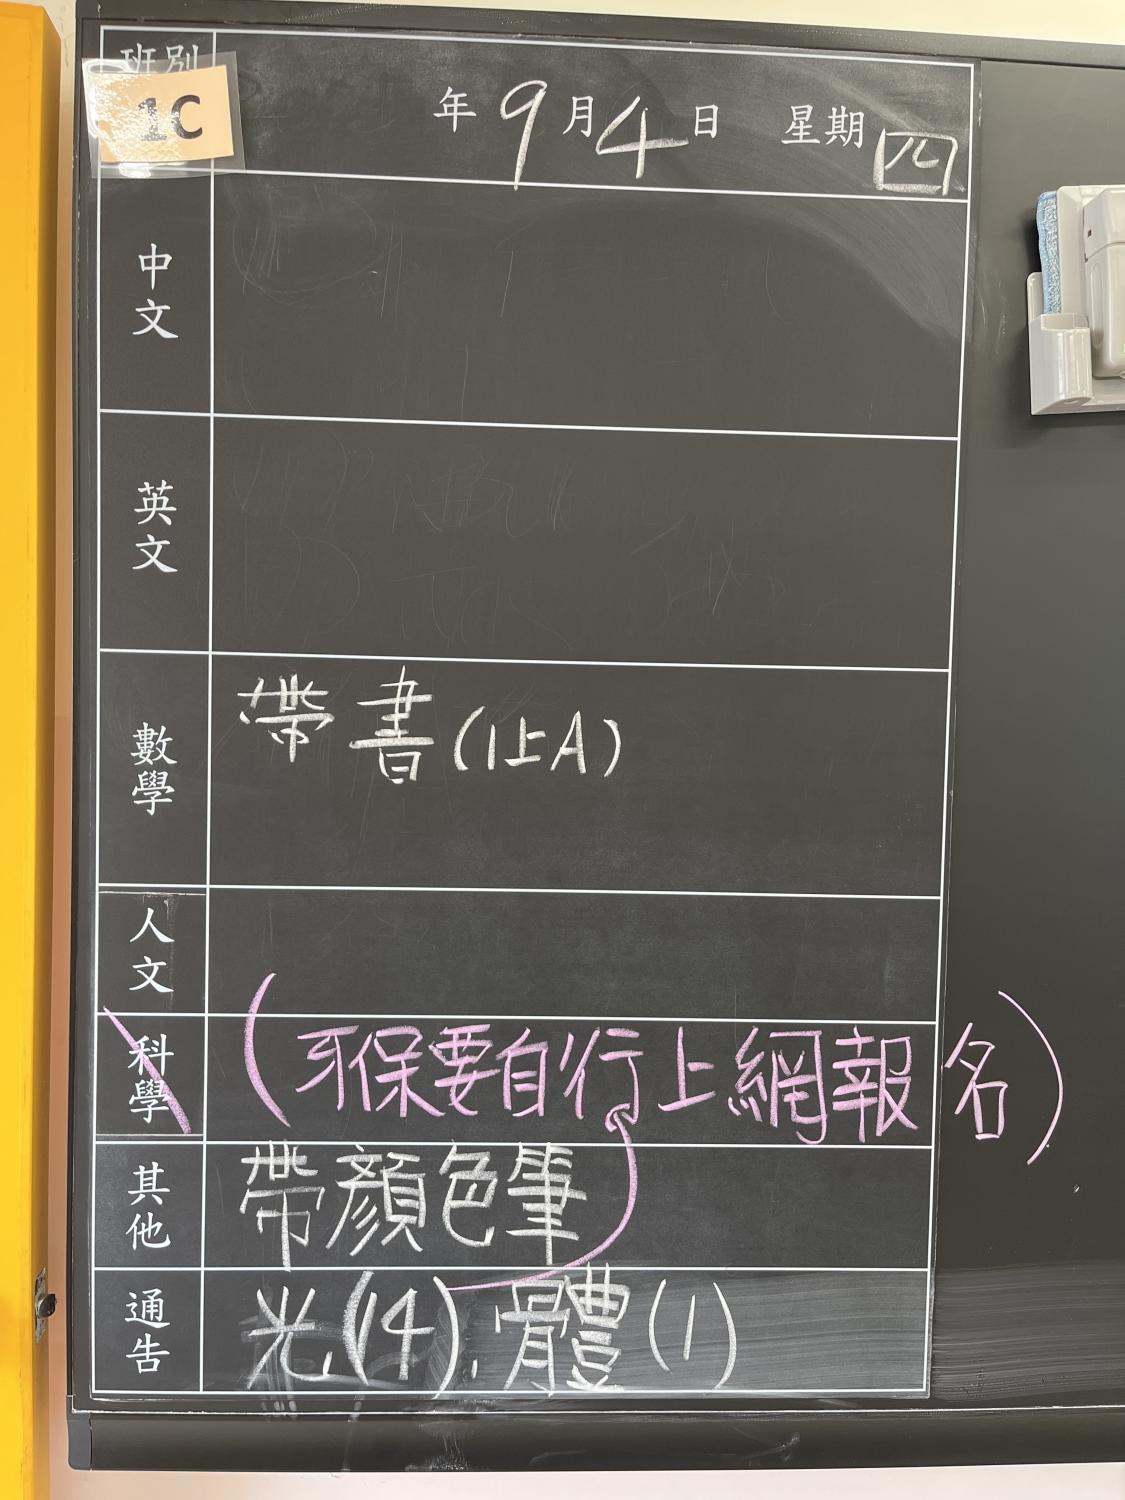 班別
1C
年9月4日 星期四
中文
英文
數學 帶書(1上A)
人文
科學 (牙保要自行上網報名)
其他 帶顏色筆
通告 光(14), 體(1)